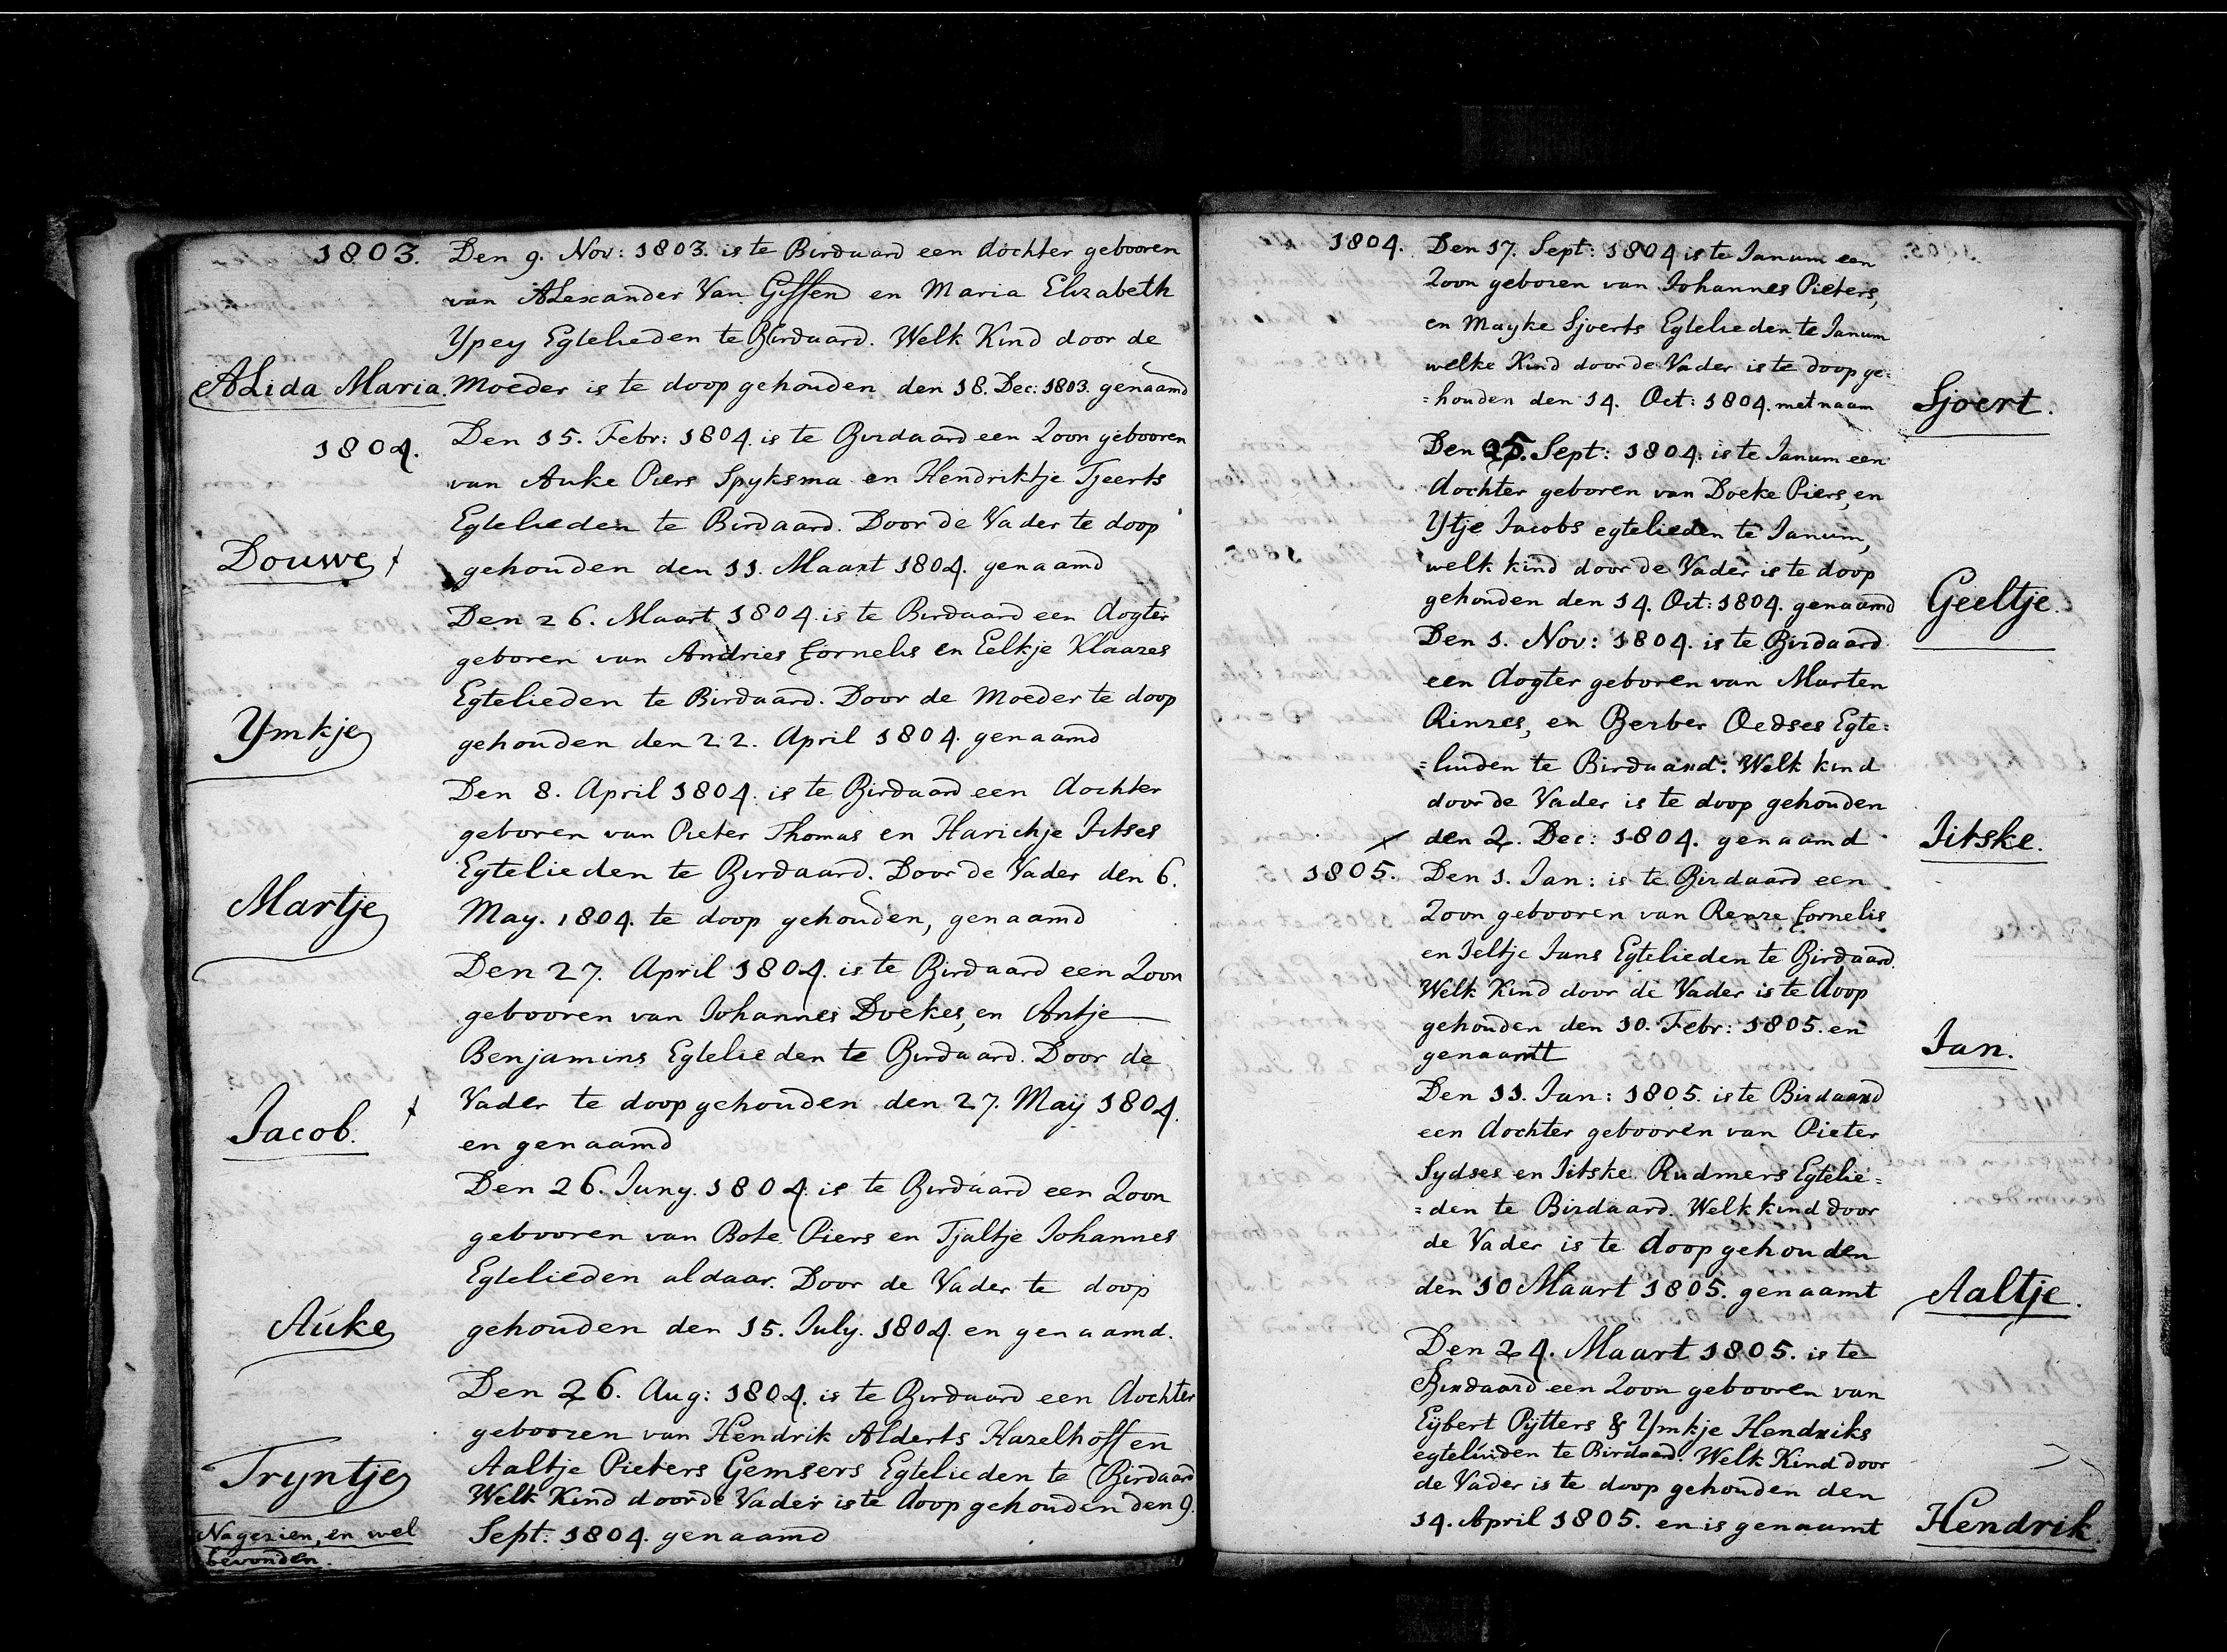 1803. Den 9. Nov: 1803. is te Birdaard een dochter gebooren
van ALexander Van Giffen en Maria Elizabeth
Ypey Egtelieden te Birdaard. Welk Kind door de
ALida Maria. Moeder is te doop gehouden den 18. Dec: 1803. genaamd
1804. Den 15. Febr: 1804. is te Birdaard een Zoon gebooren
van Auke Piers Spyksma en Hendriktje Tjeerts
Egtelieden te Birdaard. Door de Vader te doop
Douwe gehouden den 11. Maart 1804. genaamd
Den 26. Maart 1804. is te Birdaard een dogter
geboren van Andries Cornelis en Eelkje Klaazes
Egtelieden te Birdaard. Door de Moeder te doop
Ymkje gehouden den 22. April 1804. genaamd
Den 8. April 1804. is te Birdaard een dochter
geboren van Pieter Thomas en Harichje Jitses
Egtelieden te Birdaard. Door de Vader den 6.
Martje May. 1804. te doop gehouden, genaamd
Den 27. April 1804. is te Birdaard een Zoon
gebooren van Johannes Doekes, en Antje
Benjamins Egtelieden te Birdaard. Door de
Vader te doop gehouden den 27. Maij 1804.
Jacob. en genaamd
Den 26. Juny. 1804. is te Birdaard een Zoon
gebooren van Bote Piers en Tjaltje Johannes
Egtelieden aldaar. Door de Vader te doop
Auke gehouden den 15. July. 1804. en genaamd.
Den 26. Aug: 1804. is te Birdaard een dochter
gebooren van Hendrik Alderts Hazelhoff en
Aaltje Pieters Gemsers Egtelieden te Birdaard
Tryntje Welk Kind door de Vader is te doop gehouden den 9.
Sept: 1804. genaamd
Nagezien, en wel
bevonden.
1804. Den 17. Sept: 1804 is te Janum een
Zoon geboren van Johannes Pieters,
en Mayke Sjoerts Egtelieden te Janum
welke Kind door de Vader is te doop ge=
=houden den 14. Oct: 1804. met naam Sjoert.
Den 25. Sept: 1804. is te Janum een
dochter geboren van Doeke Piers, en
Ytje Jacobs egtelieden te Janum,
welk kind door de Vader is te doop
gehouden den 14. Oct: 1804. genaamd Geeltje.
Den 1. Nov: 1804. is te Birdaard
een dogter geboren van Marten
Rinzes, en Berber Oedses Egte=
=luiden te Birdaard. Welk kind
door de Vader is te doop gehouden
den 2. Dec: 1804. genaamd Jitske.
1805. Den 1. Jan: is te Birdaard een
Zoon gebooren van Renze Cornelis
en Jeltje Jans Egtelieden te Birdaard.
Welk Kind door de Vader is te doop
gehouden den 10. Febr: 1805. en
genaamt Jan.
Den 11. Jan: 1805. is te Birdaard
een dochter gebooren van Pieter
Sydses en Jitske Rudmers Egtelie=
=den te Birdaard. Welk kind door
de Vader is te doop gehouden
den 10 Maart 1805. genaamt Aaltje.
Den 24. Maart 1805. is te
Birdaard een Zoon gebooren van
Eijbert Pijtters & Ymkje Hendriks
egteluiden te Birdaard. Welk Kind door
de Vader is te doop gehouden den
14. April 1805. en is genaamt Hendrik.